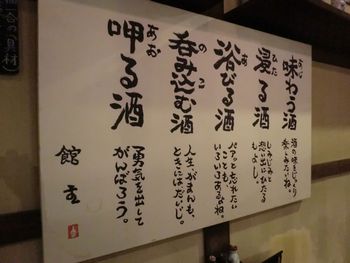 味わう酒
あじ
酒の味をじっくり
楽しみたいね。
浸る酒
ひた
しみじみと
思い出にひたる
もよし。
浴びる酒
あ
パァッと忘れたい
ことも、
いろいろあるよね。
呑み込む酒
のこ
人生、がまんも、
ときにはだいじ。
呷る酒
あお
勇気を出して
がんばろう。
館主